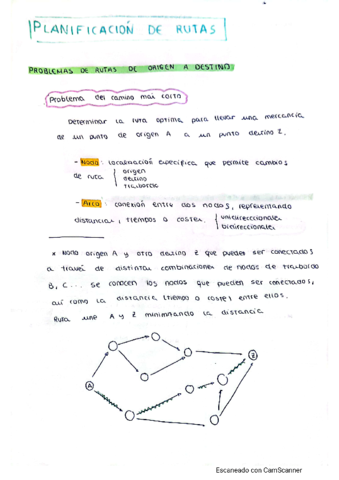 PLANIFICACIÓN DE RUTAS
PROBLEMAS DE RUTAS DE ORIGEN A DESTINO
Problema del camino mas corto
Determinar la ruta optima para llevar una mercancia
de un punto de origen A a un punto destino Z.
- Nodo: localización especifica que permite cambios
de ruta
origen
destino
trasbordo
- Arco: conexión entre dos nodos, representando
distancias, tiempos o costes.
unidireccionales
bidireccionales
* Nodo origen A y otro destino Z que pueden ser conectados
a través de distintas combinaciones de nodos de trasbordo
B, C... Se conocen los nodos que pueden ser conectados,
así como la distancia (tiempo o coste) entre ellos.
Ruta une A y Z minimizando la distancia
Z
A
Escaneado con CamScanner